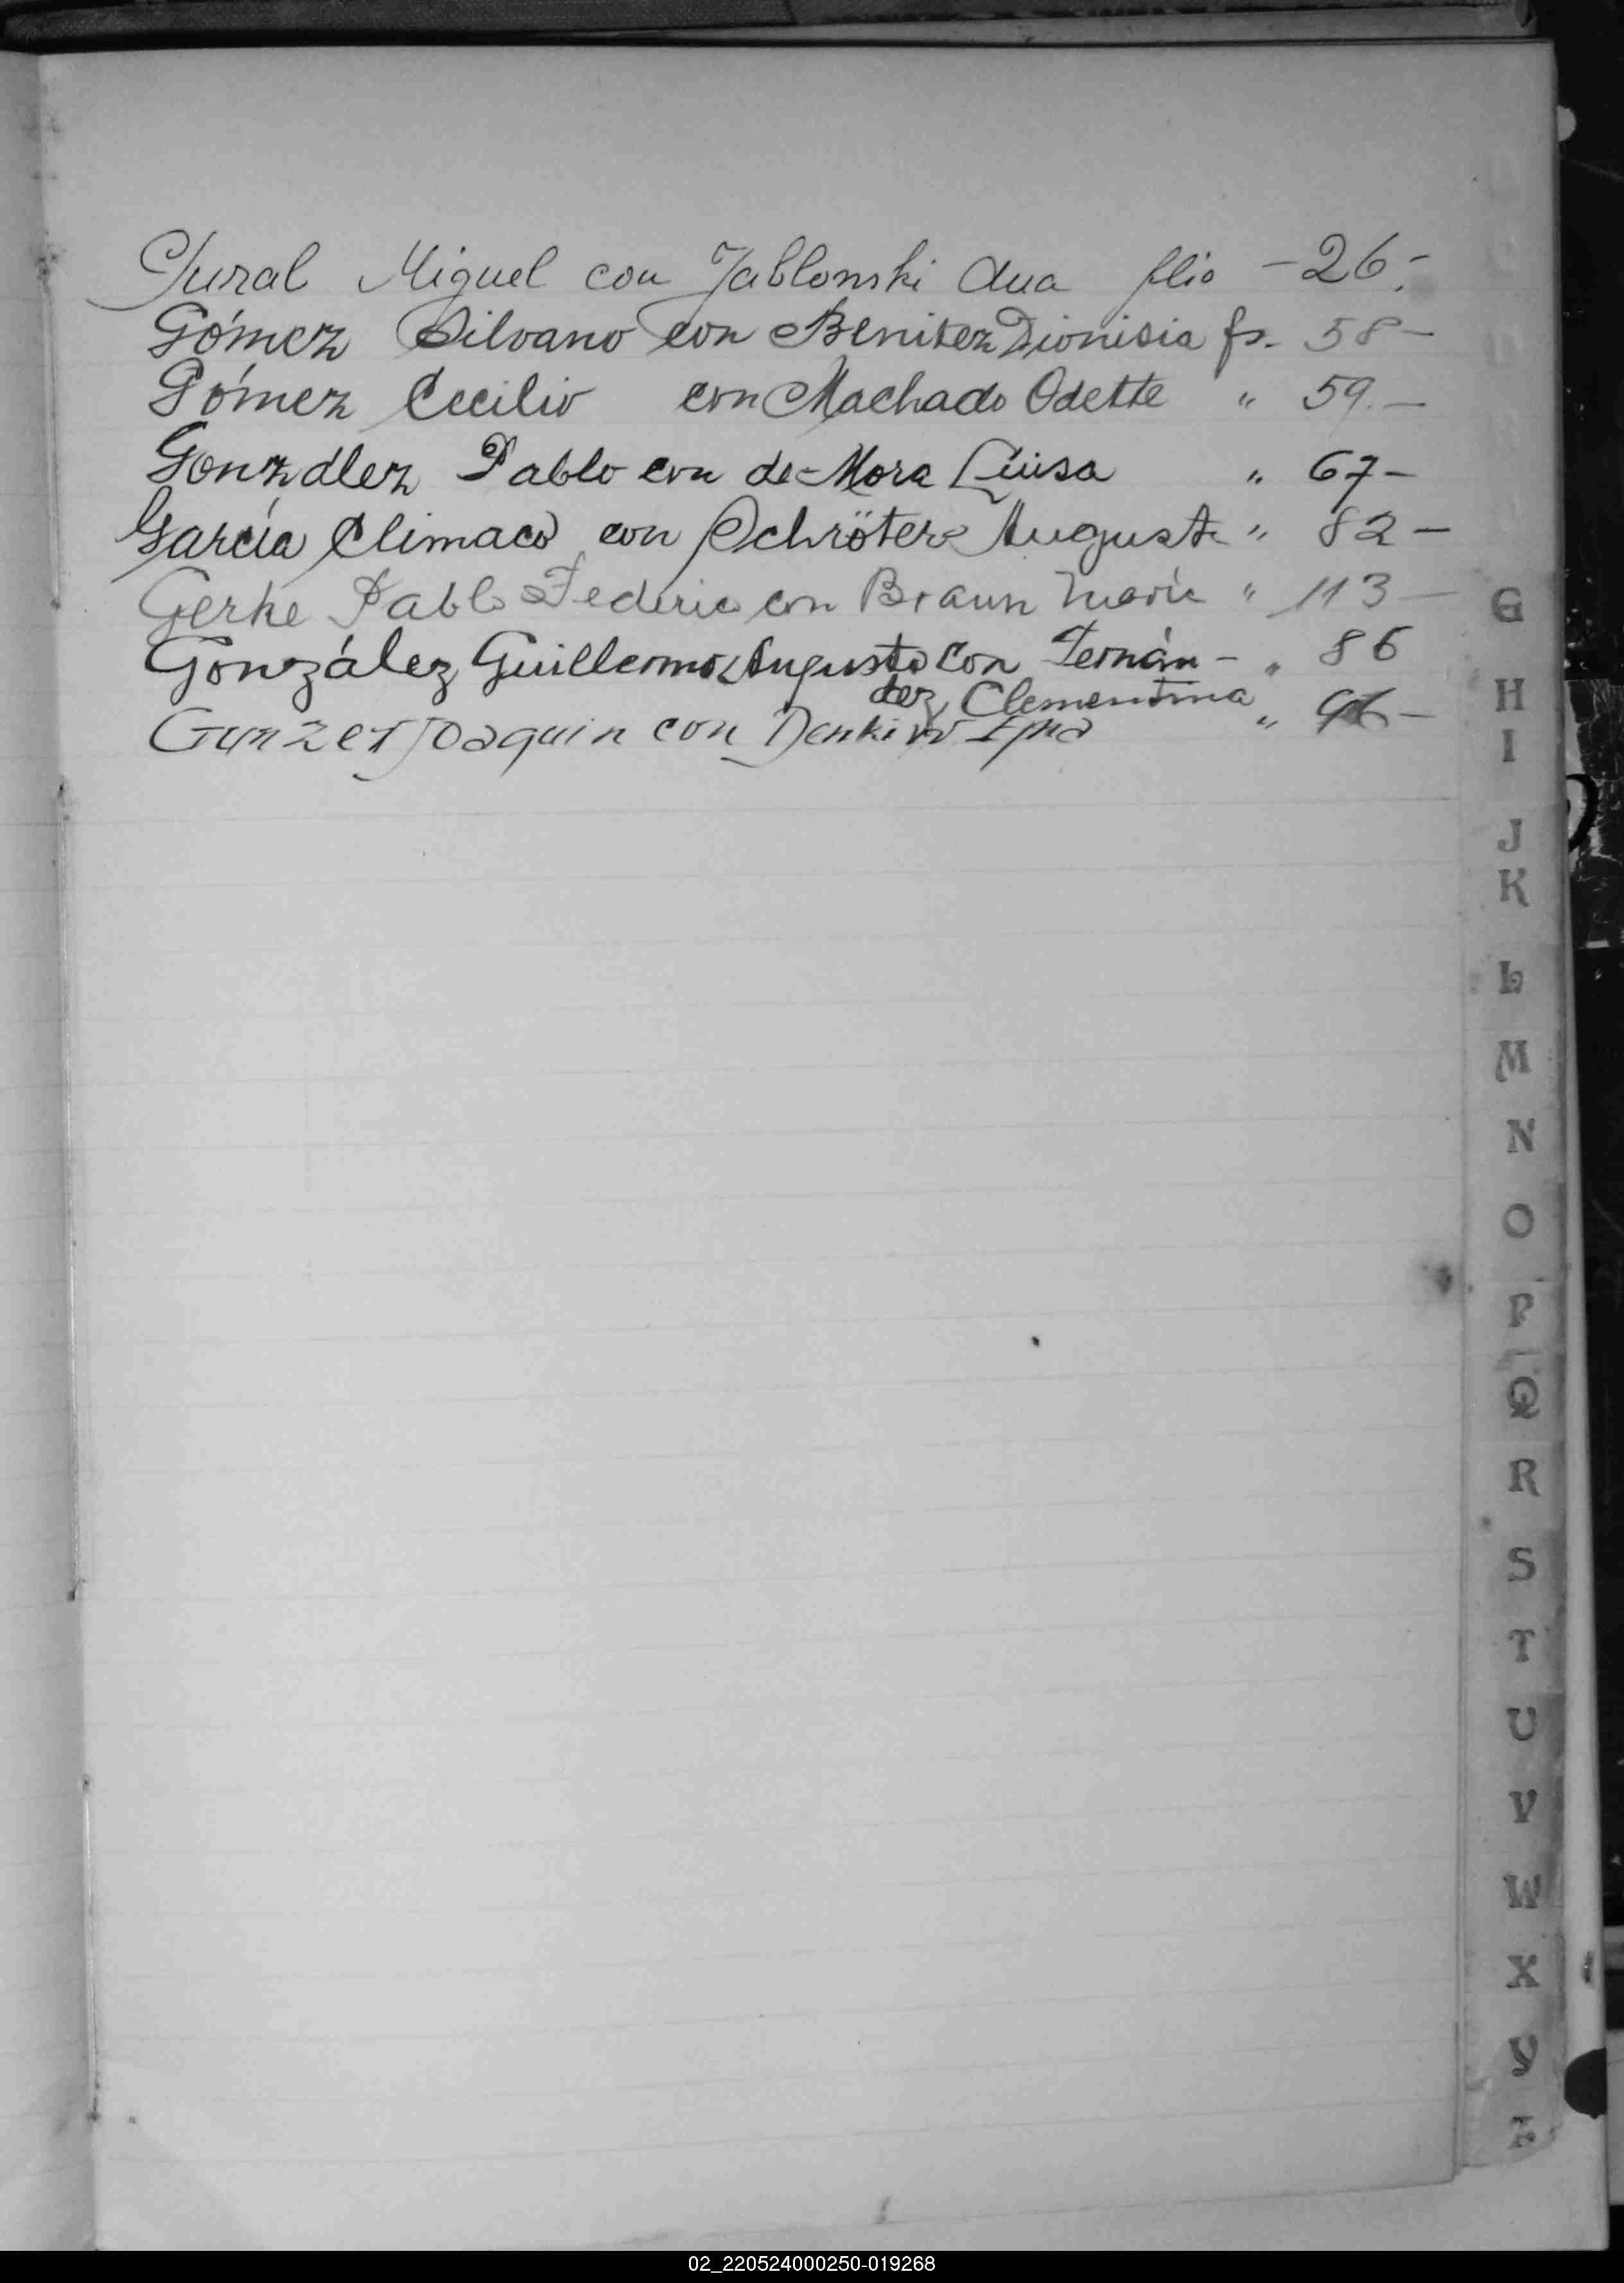 Gural Miguel con Jablonski Ana flio - 26.-
Gómez Silvano con Benitez Dionisia fs. 58 -
Gómez Cecilio con Machado Odette " 59. -
González Pablo con de Mora Luisa " 67 -
García Climaco con Schröter Auguste " 82 -
Gerke Pablo Federico con Braun Marie " 113 -
González Guillermo Augusto con Fernán- " 86
dez Clementina
Gunzer Joaquin con " -
G
H
I
J
K
L
M
N
O
P
Q
R
S
T
U
V
W
X
Y
Z
02_220524000250-019268